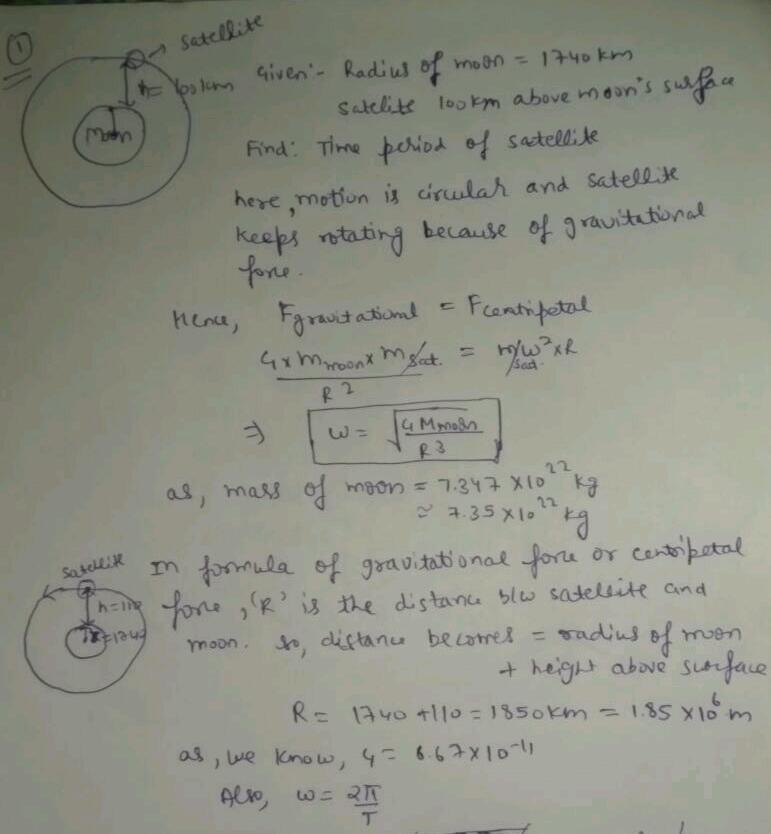 ①
satellite
h= 100km
Moon
Given:- Radius of moon = 1740 km
satelite 100km above moon's surface
Find: Time period of satellite
here, motion is circular and satellite
keeps rotating because of gravitational
force.
Hence, Fgravitational = Fcentripetal
G x Mmoon x msat. / R2 = msat. w²xR
⇒ w = √(G Mmoon / R3)
as, mass of moon = 7.347 X10^22 kg
≃ 7.35 X10^22 kg
satellite
h=110
R=1740
In formula of gravitational force or centripetal
force, 'R' is the distance b/w satellite and
moon. so, distance becomes = radius of moon
+ height above surface
R = 1740 +110 = 1850km = 1.85 X10^6 m
as, we know, G = 6.67X10^-11
Also, w = 2π/T